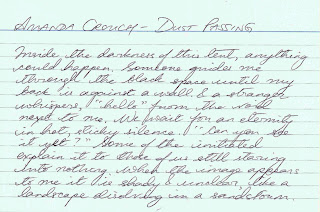 AMANDA CROUCH - DUST PASSING
Inside the darkness of this tent, anything
could happen. Someone guides me
through the black space until my
back is against a wall & a stranger
whispers, "hello" from the void
next to me. We wait for an eternity
in hot, sticky silence. "Can you see
it yet?" Some of the initiated
explain it to those of us still staring
into nothing. When the image appears
to me it is shady & unclear, like a
landscape dissolving in a sandstorm.